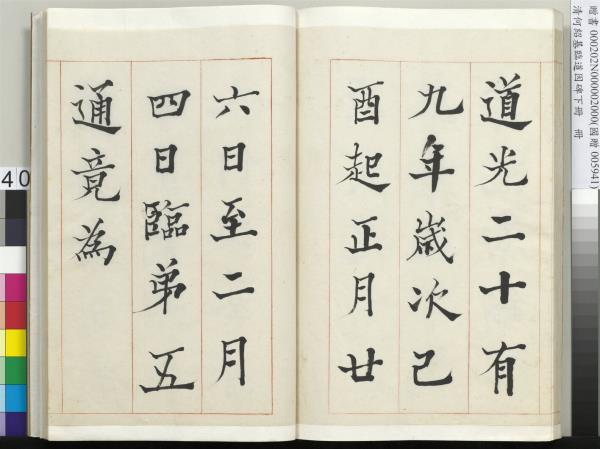 贈書 000202N000002000(國贈 005941)
清何紹基臨道因碑下冊 冊
道光二十有
九年歲次己
酉起正月廿
六日至二月
四日臨弟五
通竟為
40